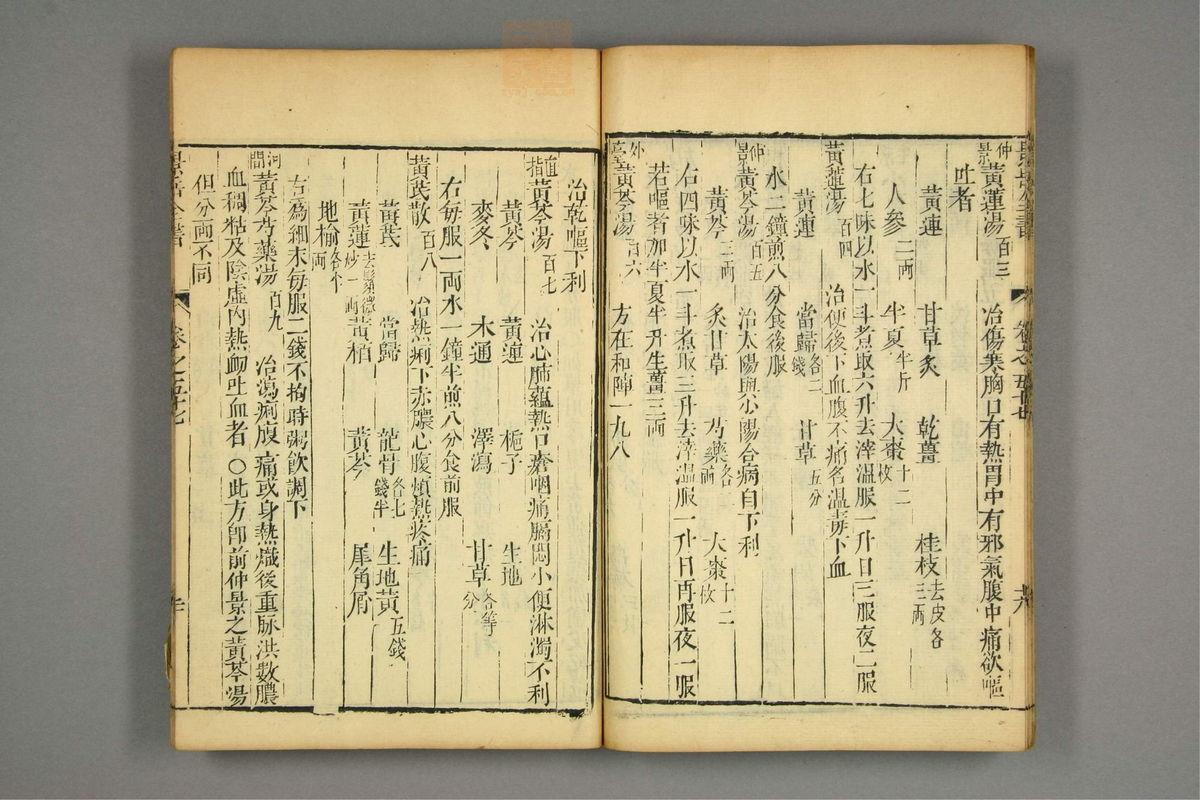 仲景黃蓮湯百三　治傷寒胸口有熱胃中有邪氣腹中痛欲嘔
吐者
黃連　甘草炙　乾薑　桂枝去皮各三兩
人參二兩　半夏半斤　大棗十二枚
右七味以水一斗煮取六升去滓溫服一升日三服夜二服
黃蓮湯百四　治便後下血腹不痛名溫毒下血
黃連　當歸各二錢　甘草五分
水二鐘煎八分食後服
仲景黃芩湯百五　治太陽與少陽合病自下利
黃芩三兩　炙甘草　芍藥各二兩　大棗十二枚
右四味以水一斗煮取三升去滓溫服一升日再服夜一服
若嘔者加半夏半升生薑三兩
外臺黃芩湯百六　方在和陣一九八
治乾嘔下利
直指黃芩湯百七　治心肺蘊熱口瘡咽痛膈悶小便淋濁不利
黃芩　黃連　梔子　生地
麥冬　木通　澤瀉　甘草各等分
右每服一兩水一鐘半煎八分食前服
黃芪散百八　治熱痢下赤膿心腹煩熱疼痛
黃芪　當歸　龍骨各七錢半　生地黃五錢
黃蓮去鬚微炒一兩　黃柏　黃芩　犀角屑
地榆各半兩
右為細末每服二錢不拘時粥飲調下
河間黃芩芍藥湯百九　治瀉痢腹痛或身熱熾後重脉洪數膿
血稠粘及陰虛內熱衂吐血者〇此方卽前仲景之黃芩湯
但分兩不同
景岳全書　卷之五十七